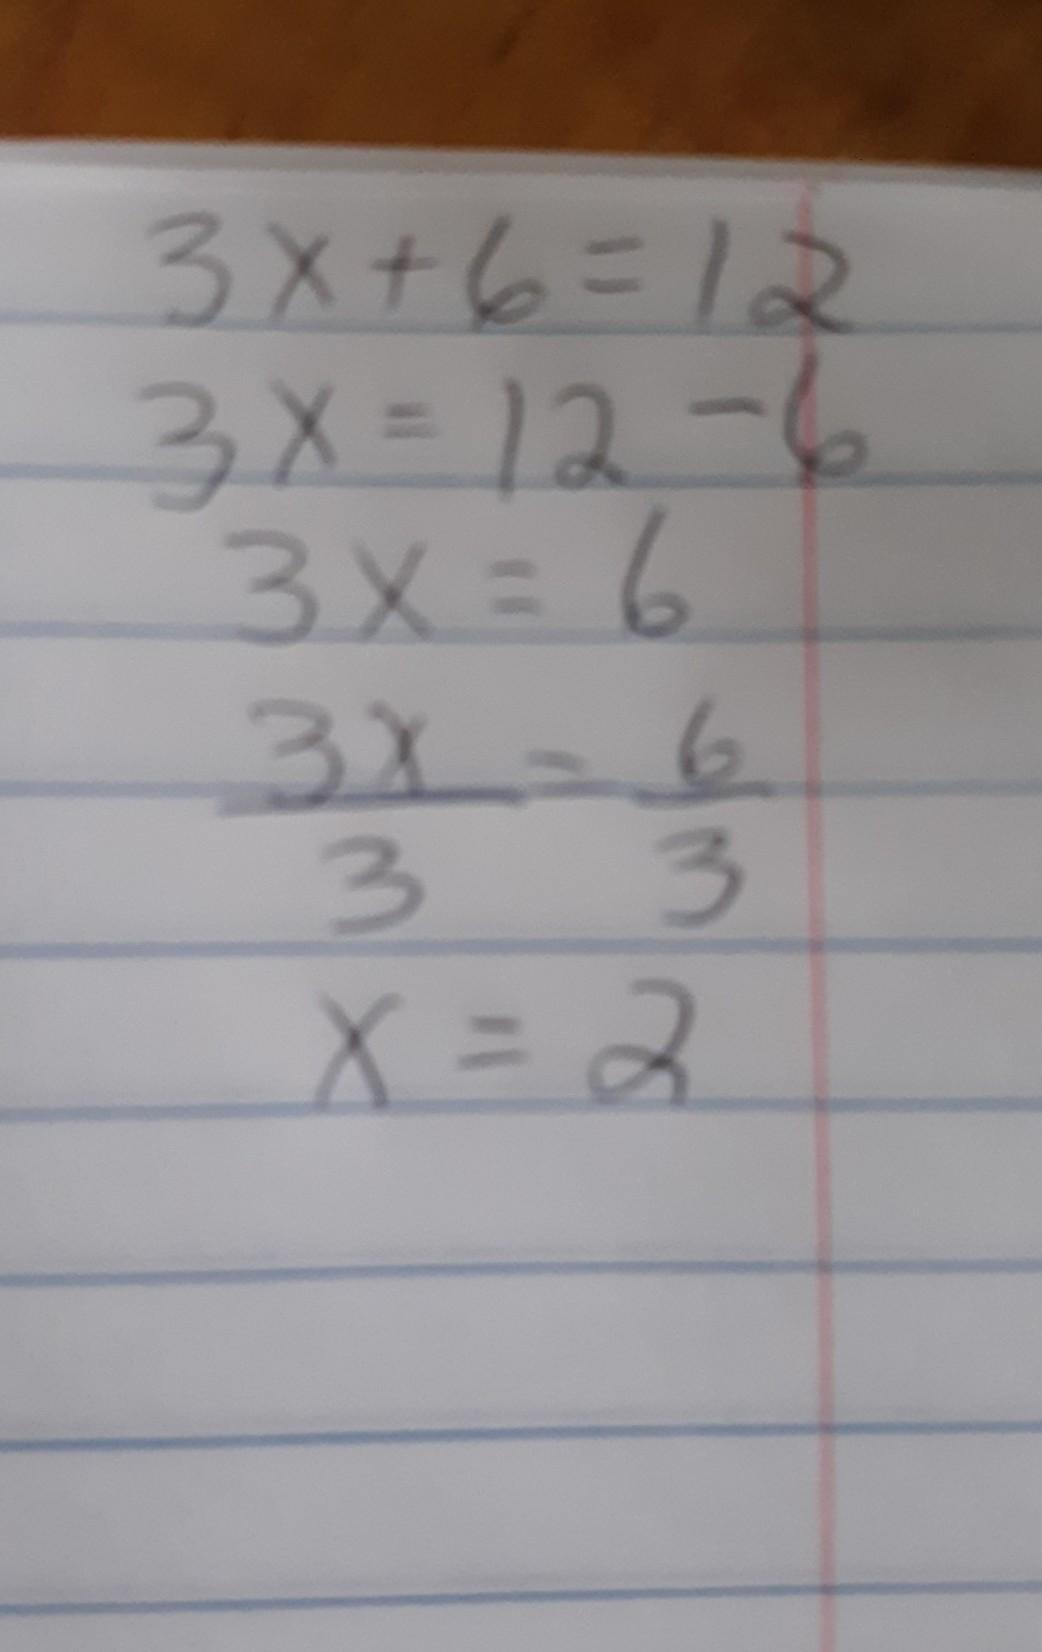 3x+6=12
3x=12-6
3x=6
3x/3=6/3
x=2